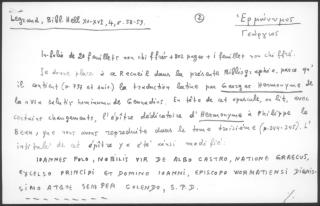 Legrand, Bibl. Hell. XV-XVI, 4, p. 58-59. ② Ἑρμώνυμος
Γεώργιος
In-folio de 20 feuillets non chiffrés + 802 pages + 1 feuillet non chiffré.
Je donne place à ce Recueil dans la présente Bibliographie, parce qu'
il contient (p. 778 et suiv.) la traduction latine par Georges Hermonyme de
la via salutis hominum de Gennadios. En tête de cet opuscule, on lit, avec
certains changements, l'épître dédicatoire d'Hermonyme à Philippe le
Beau, que nous avons reproduite dans le tome troisième (p. 244-245). L'
intitulé de cette épître y a été ainsi modifié:
IOANNES POLO, NOBILIS VIR DE ALBO CASTRO, NATIONE GRAECUS,
EXCELSO PRINCIPI ET DOMINO IOANNI, EPISCOPO WORMATIENSI DIGNIS-
SIMO ATQUE SEMPER COLENDO, S.P.D.